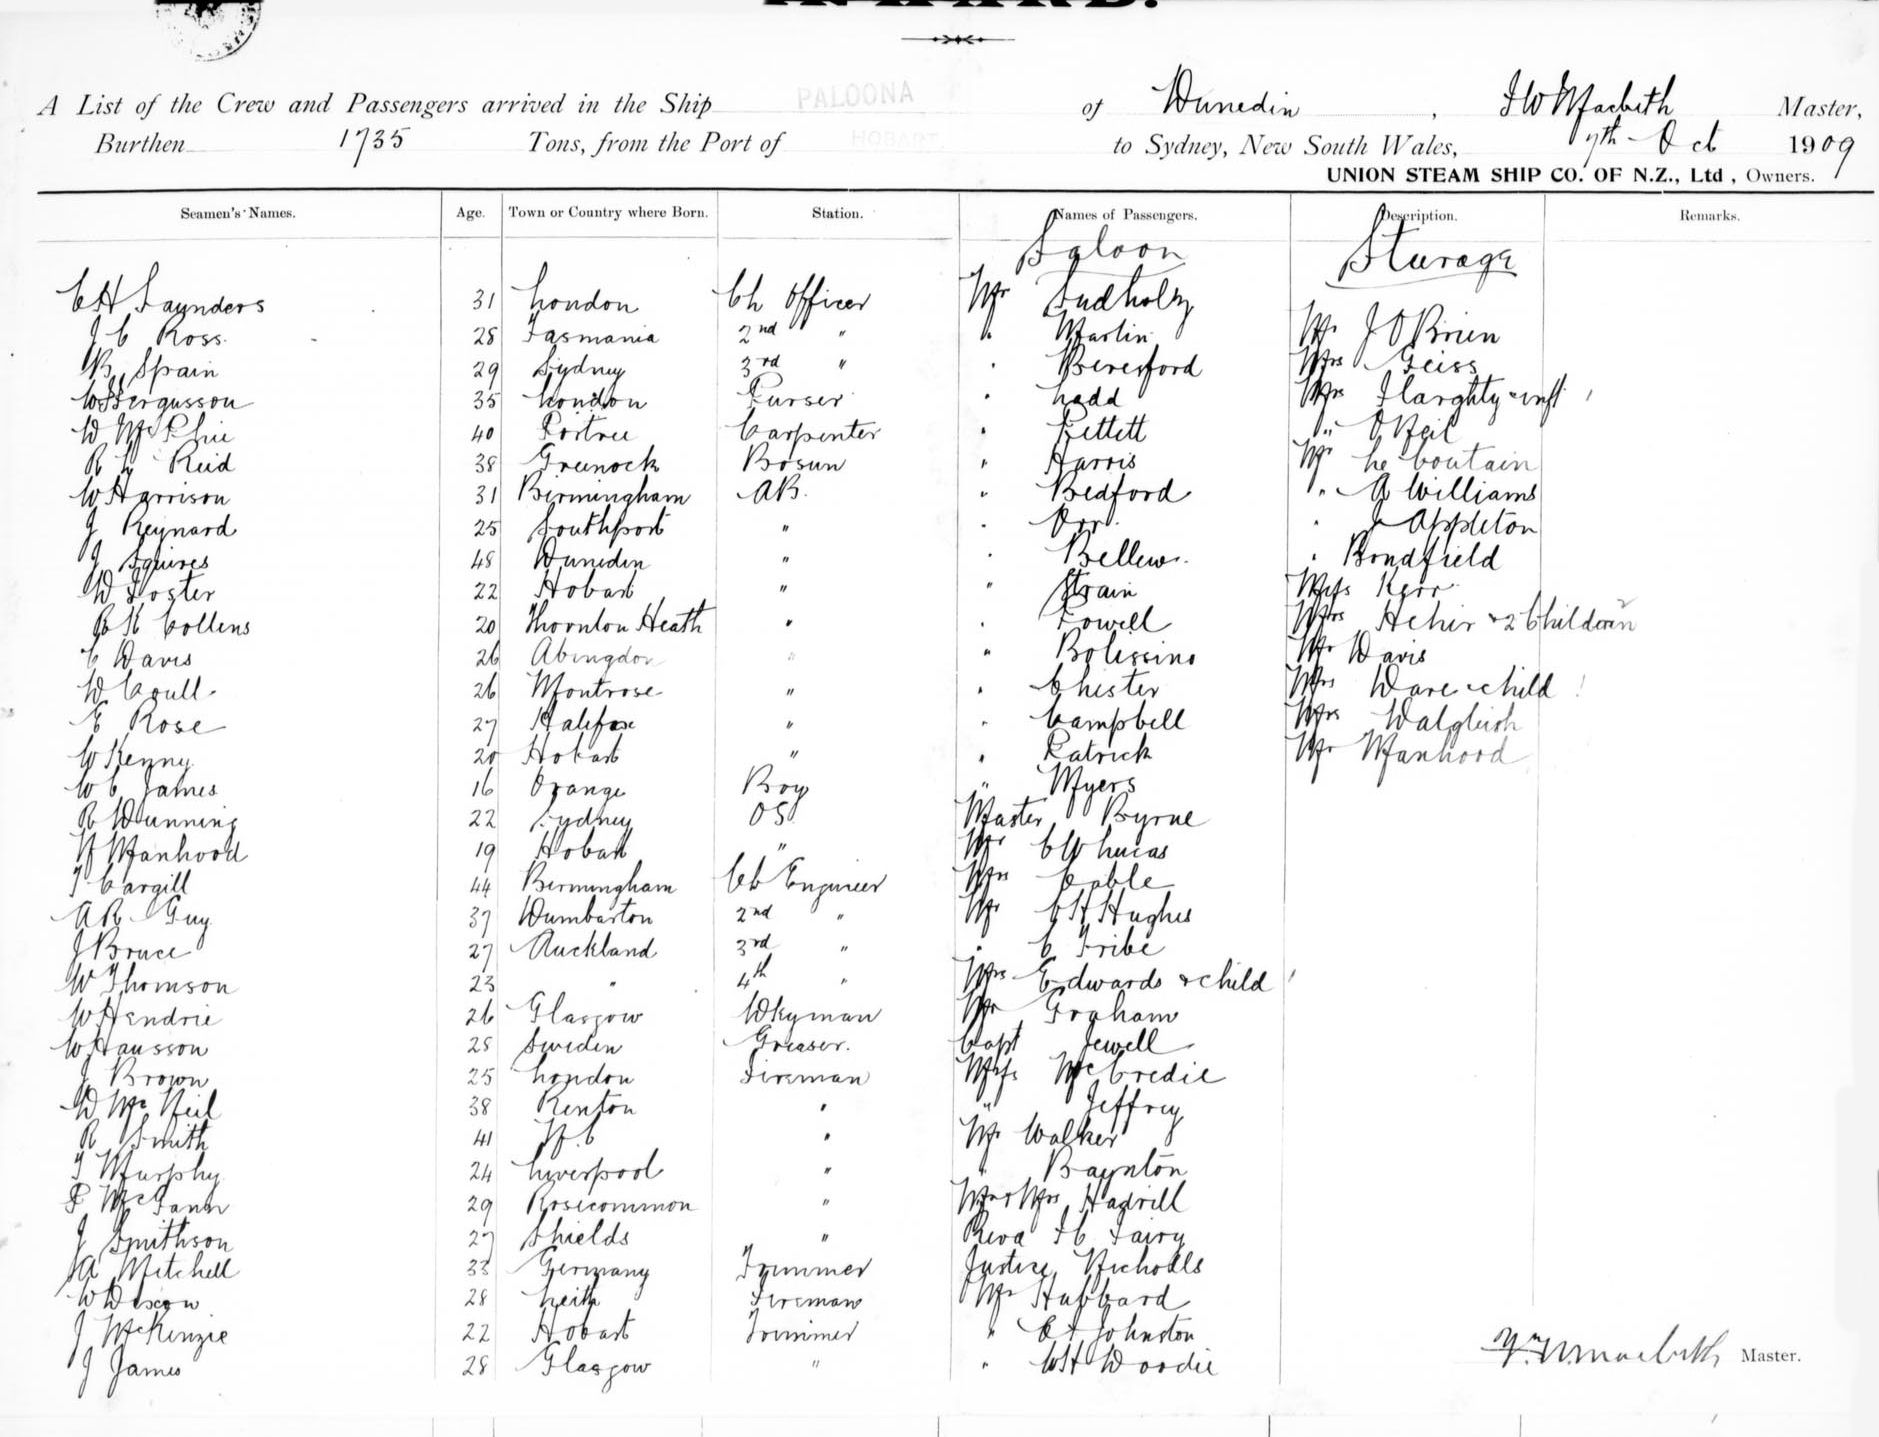 A List of the Crew and Passengers arrived in the Ship PALOONA of Dunedin, Master,
Burthen 1735 Tons, from the Port of HOBART to Sydney, New South Wales, 7th Oct 1909
UNION STEAM SHIP CO. OF N.Z., Ltd, Owners.
Seamen's Names. Age. Town or Country where Born. Station. Names of Passengers. Description. Remarks.
Saloon Sturage
C H Saunders 31 London Ch Officer Mr Sudholz
J C Ross. 28 Tasmania 2nd " " Martin Mr J O Brien
B Spain 29 Sydney 3rd " " Beresford Mrs Geiss
W Fergusson 35 London Purser " Ladd Mrs Flarghty & inft
W McPhie 40 Portree Carpenter " Pettett " O Neil
R Reid 38 Greenock Bosun " Harris Mr Le Coutain
W Harrison 31 Birmingham AB. " Bedford " A Williams
J Reynard 25 Southport " " Orr " J Appleton
J Squires 48 Dunedin " " Bellew " Bondfield
W Foster 22 Hobart " " Strain Miss Kerr
R K Collens 20 Thornton Heath " " Powell Mrs Hehir & 2 Children
C Davis 26 Abingdon " " Bolissino Mr Davis
W Coull 26 Montrose " " Chester Mrs Ware & child
E Rose 27 Halifax " " Campbell Mrs Dalgleish
W Kenny 20 Hobart " " Patrick Mr Manhood
W C James 16 Orange Boy " Myers
R Dunning 22 Sydney OS Master Byrne
N Manhood 19 Hobart " Mr C W Lucas
T Cargill 44 Birmingham Ch Engineer Mrs Cable
A R Guy 37 Dumbarton 2nd " Mr C H Hughes
J Bruce 27 Auckland 3rd " " C Tribe
W Thomson 23 " 4th " Mrs Edwards & child
W Hendrie 26 Glasgow Dkyman Mr Graham
W Hansson 28 Sweden Greaser. Capt Jewell
J Brown 25 London Fireman Miss McCredie
D McNeil 38 Renton " " Jeffrey
R Smith 41 " Mr Walker
T Murphy 24 Liverpool " " Baynton
P McCann 29 Roscommon " Mr & Mrs Hadrill
J Smithson 27 Shields " Revd Fairy
A Mitchell 33 Germany Trimmer Justice Nicholls
W Dixon 28 Leith Fireman Mr Hubbard
J McKenzie 22 Hobart Trimmer " Johnston
J James 28 Glasgow " " W H Woodie
Master.